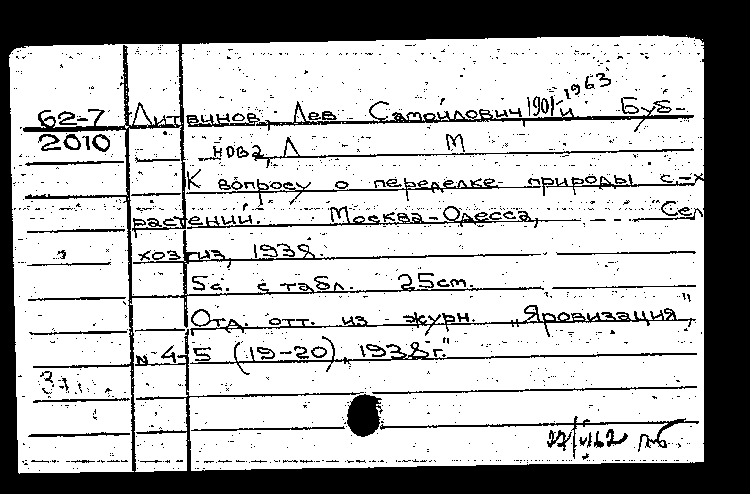 1963
62-7 Литвинов, Лев Самойлович, 1901- и Буб-
2010 нов2, Л М
К вопросу о переделке природы с.-х
растений. Москва-Одесса, "Сел
хозгиз, 1938.
5с. с табл. 25см.
Отд. отт. из журн. "Яровизация",
№ 4-5 (19-20), 1938г."
п.б.